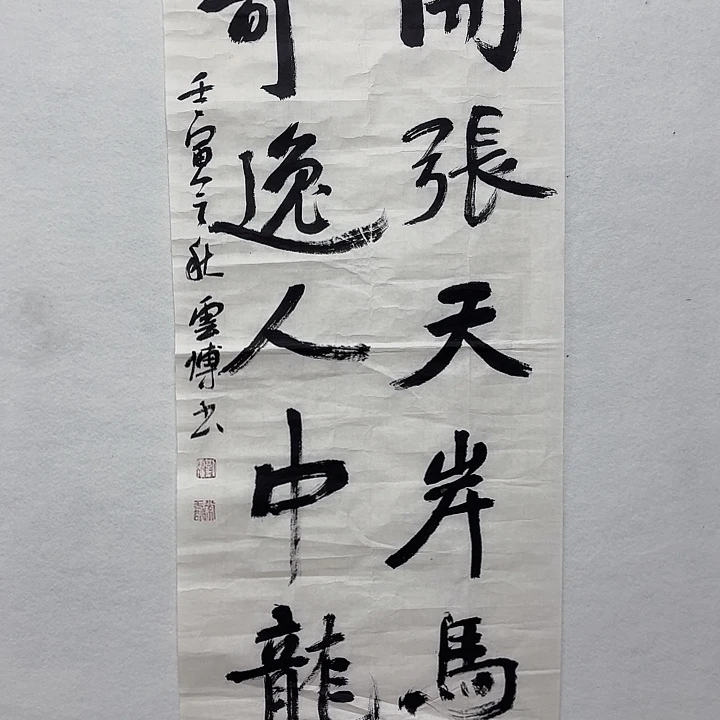 開張天岸馬
奇逸人中龍
壬寅之秋雲博書